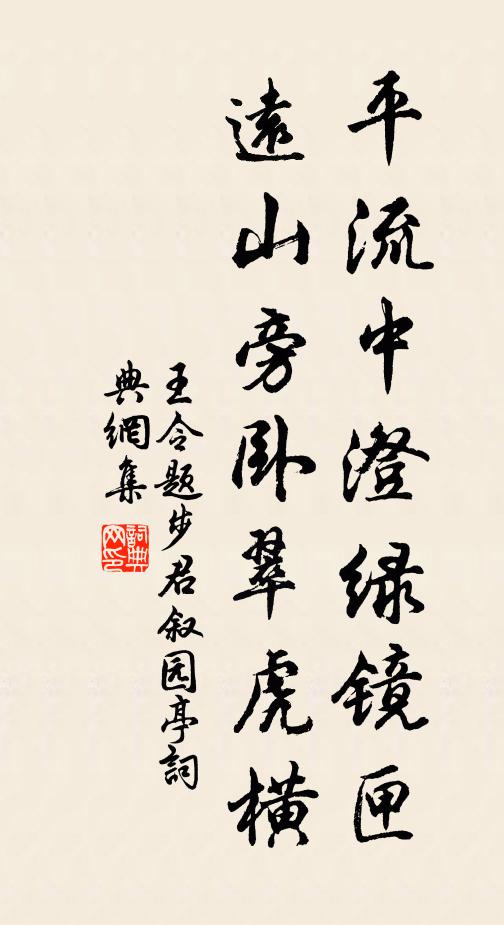 平流中澄緑镜匣
遠山旁卧翠虎横
王令题步君叙园亭詞
典網集
詞典
网印